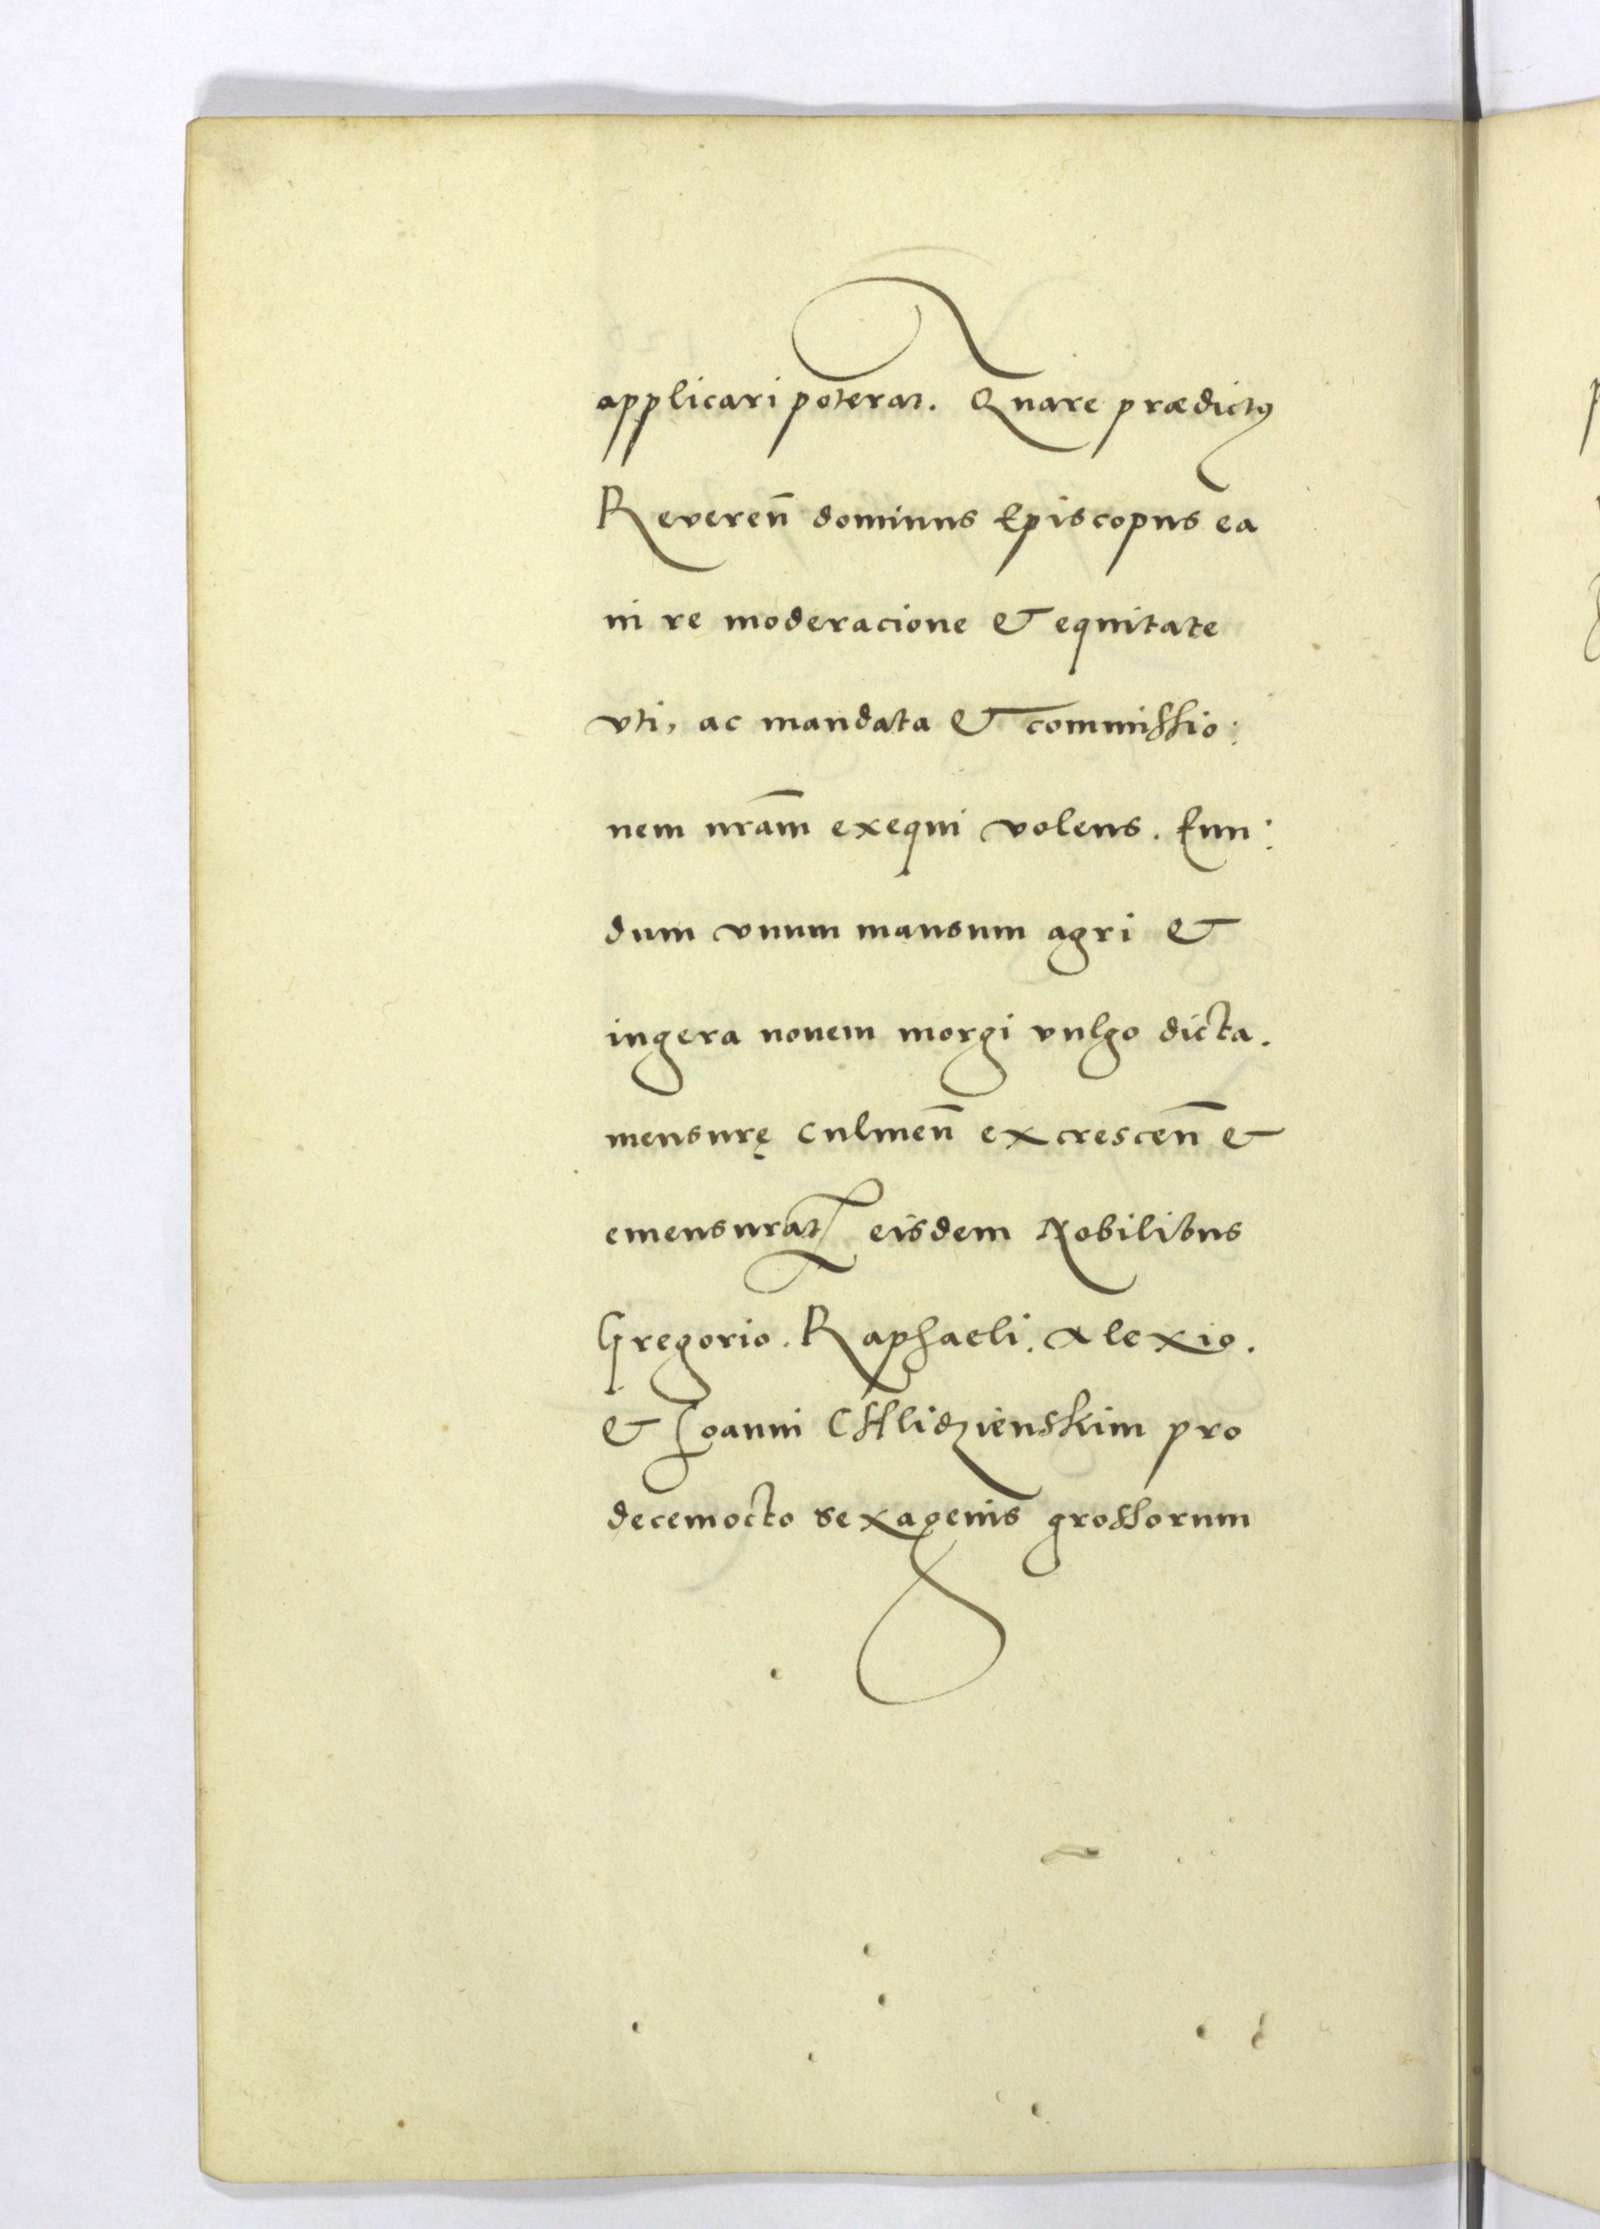 applicari poterat. Quare prædictꝰ
Reveren̄ dominus Episcopus ea
in re moderacione & equitate
vti, ac mandata & commissio:
nem nr̄am exequi volens. Eun:
dum vnum mansum agri &
iugera nouem morgi vulgo dicta.
mensurę culmen̄ excrescen̄ &
emensurat eisdem Nobilibus
Gregorio. Raphaeli. Alexio.
& Joanni CHlidzienskim pro
decemocto sexagenis grossorum